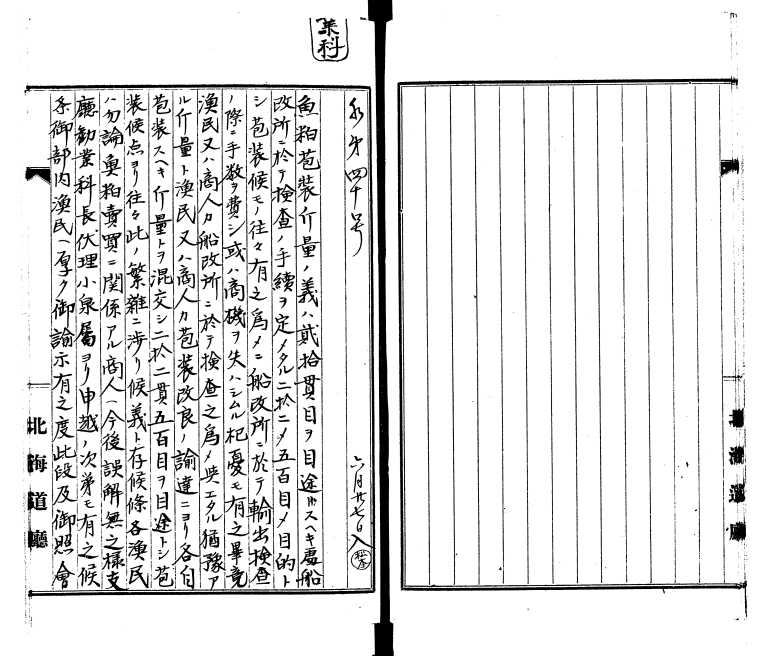 第四十号
六月廿七日入
魚粕苞装斤量ノ義ハ貳拾貫目ヲ目途トスヘキ處船
改所ニ於テ検查ノ手續ヲ定メタル二於ニメ五百目メ目的ト
シ苞装候モノ往々有之為メニ船改所ニ於テ輸出検查
ノ際ニ手数ヲ費シ或ハ商磯ヲ失ハシムル杞憂モ有之畢竟
漁民又ハ商人カ船改所ニ於テ検查之為メ與エタル猶豫ア
ル斤量ト漁民又ハ商人カ苞装改良ノ諭達ニヨリ各自
苞装スヘキ斤量トヲ混交シ二拾二貫五百目ヲ目途トシ苞
装候点ヨリ往々此ノ繁雜ニ渉リ候義ト存候條各漁民
ハ勿論魚粕賣買ニ関係アル商人ヘ今後誤解無之様支
廳勧業科長伏理小泉属ヨリ申越ノ次第モ有之候
条御部内漁民ヘ厚ク御諭示有之度此段及御照會
北海道廳
北海道廳